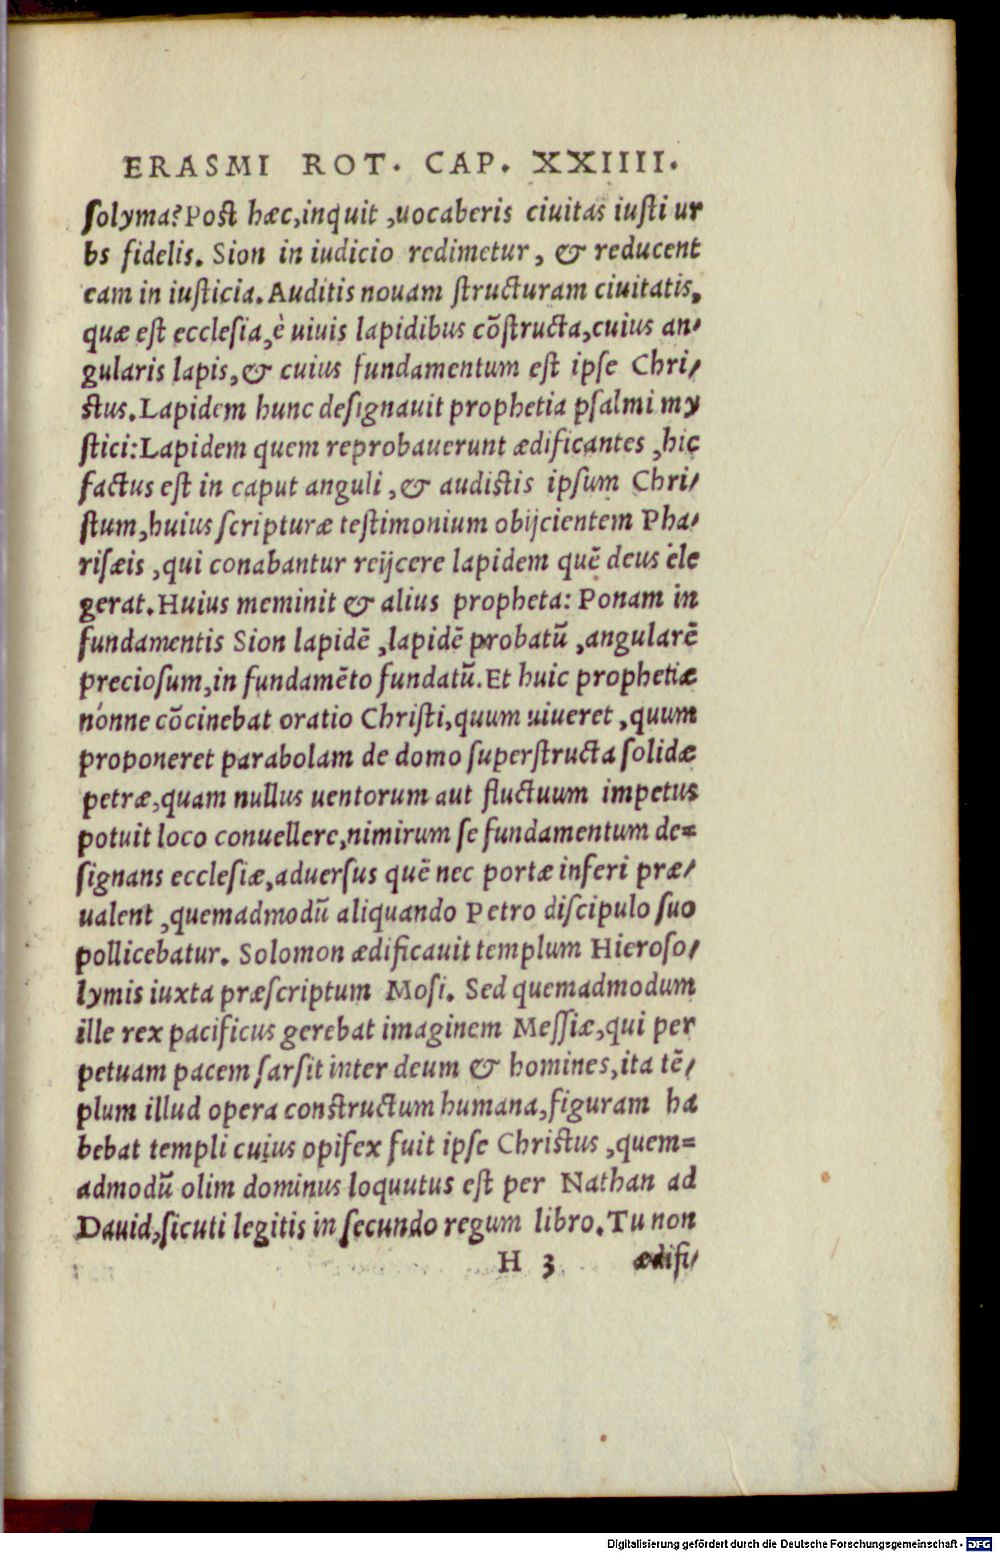 ERASMI ROT. CAP. XXIIII.
solyma? Post hæc, inquit, uocaberis ciuitas iusti ur
bs fidelis. Sion in iudicio redimetur, & reducent
eam in iusticia. Auditis nouam structuram ciuitatis,
quæ est ecclesia, è uiuis lapidibus cōstructa, cuius an-
gularis lapis, & cuius fundamentum est ipse Chri-
stus. Lapidem hunc designauit prophetia psalmi my
stici: Lapidem quem reprobauerunt ædificantes, hic
factus est in caput anguli, & audistis ipsum Chri-
stum, huius scripturæ testimonium obijcientem Pha-
risæis, qui conabantur reijcere lapidem quē deus ele
gerat. Huius meminit & alius propheta: Ponam in
fundamentis Sion lapidē, lapidē probatū, angularē
preciosum, in fundamēto fundatū. Et huic prophetiæ
nonne cōcinebat oratio Christi, quum uiueret, quum
proponeret parabolam de domo superstructa solidæ
petræ, quam nullus uentorum aut fluctuum impetus
potuit loco conuellere, nimirum se fundamentum de=
signans ecclesiæ, aduersus quē nec portæ inferi præ-
ualent, quemadmodū aliquando Petro discipulo suo
pollicebatur. Solomon ædificauit templum Hieroso-
lymis iuxta præscriptum Mosi. Sed quemadmodum
ille rex pacificus gerebat imaginem Messiæ, qui per
petuam pacem sarsit inter deum & homines, ita tē-
plum illud opera constructum humana, figuram ha
bebat templi cuius opifex fuit ipse Christus, quem=
admodū olim dominus loquutus est per Nathan ad
Dauid, sicuti legitis in secundo regum libro. Tu non
H 3 ædifi-
Digitalisierung gefördert durch die Deutsche Forschungsgemeinschaft - DFG